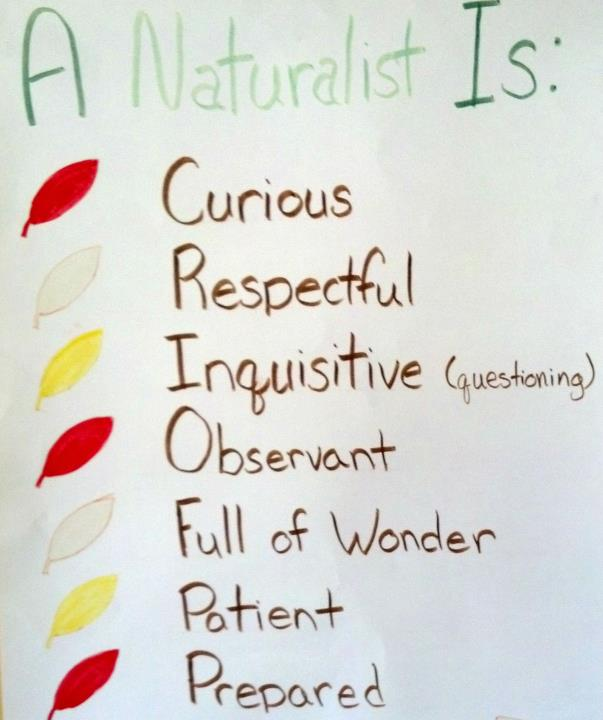 A Naturalist Is:
Curious
Respectful
Inquisitive (questioning)
Observant
Full of Wonder
Patient
Prepared